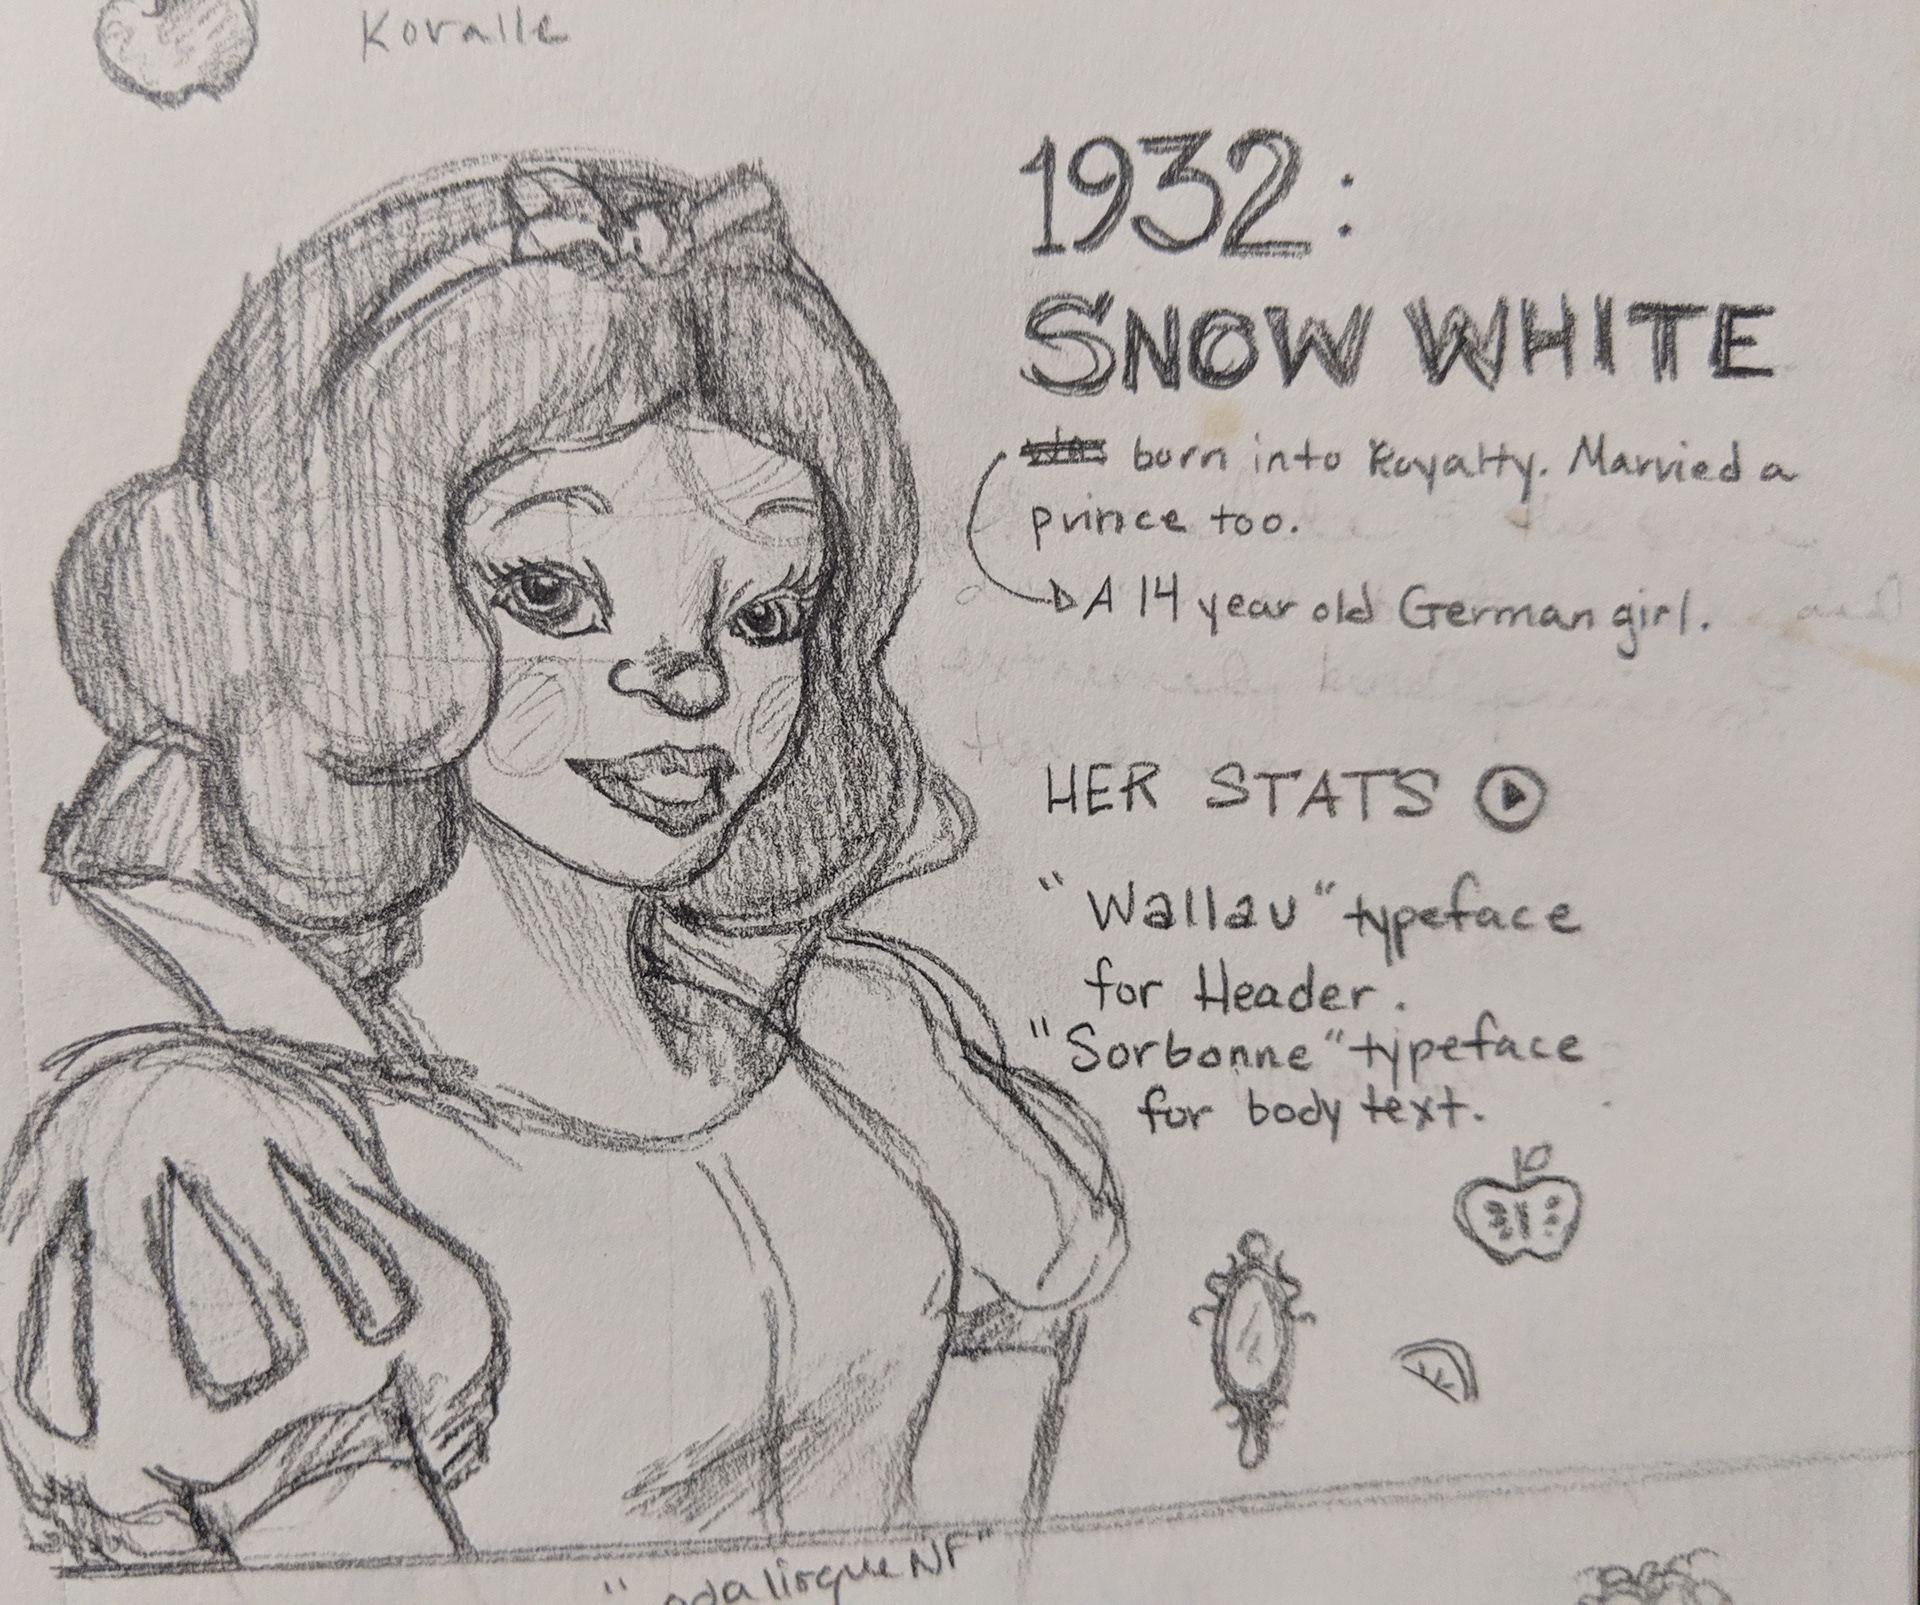 Koralle
1932:
SNOW WHITE
Was born into Royalty. Married a
prince too.
A 14 year old German girl.
HER STATS
"Wallau" typeface
for Header.
"Sorbonne" typeface
for body text.
"odalisque NF"